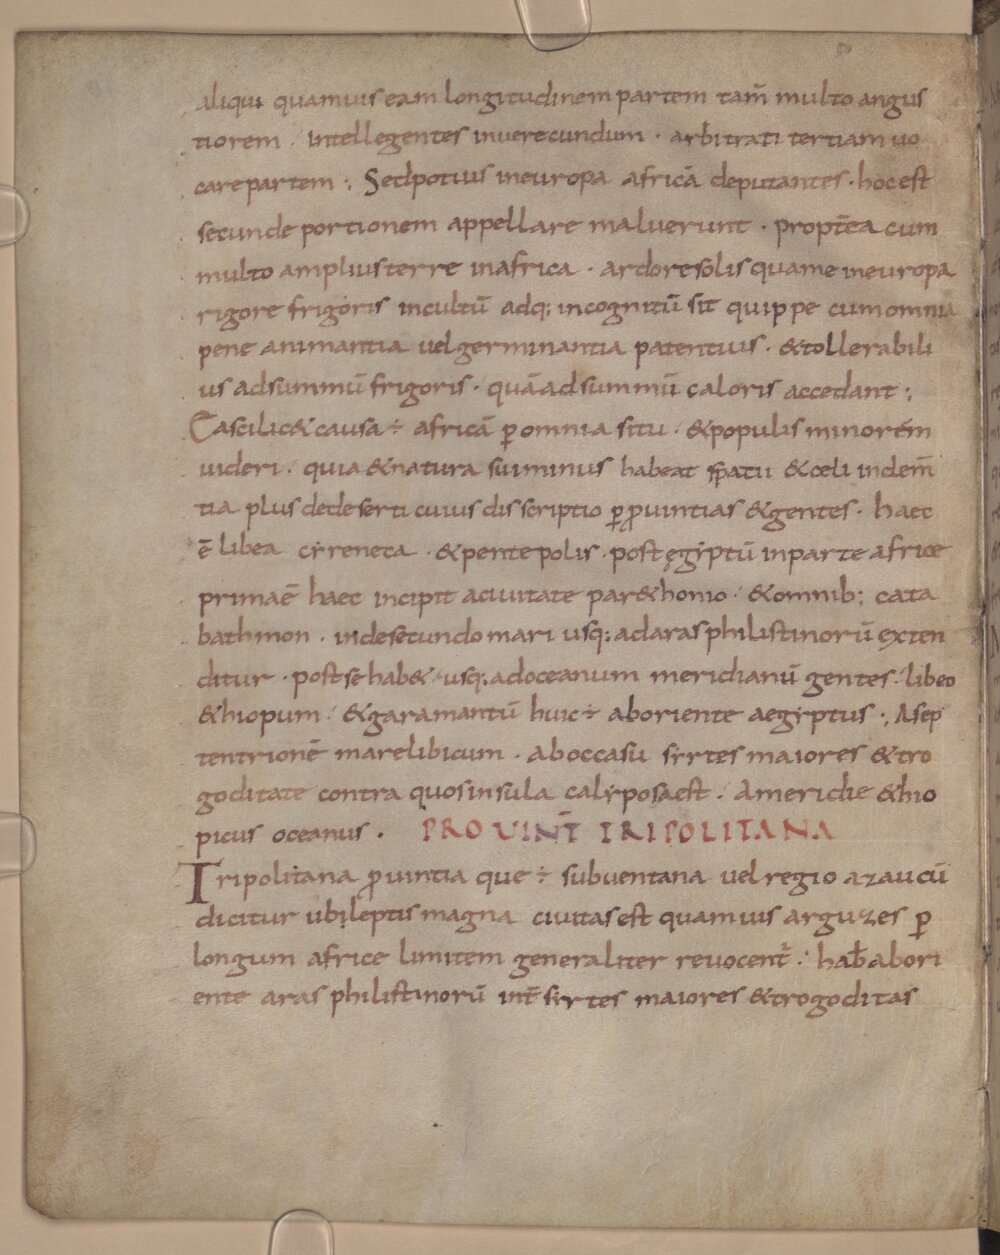 aliqui quamuis eam longitudinem partem tam̄ multo angus
tiorem · intellegentes inverecundum · arbitrati tertiam uo
care partem ; Sed potius in europa africā deputantes · hoc est
secunde portionem appellare maluerunt · propt̄ea cum
multo amplius terre in africa · ardore solis quam e in europa
rigore frigoris incultū adq; incognitū sit quippe cum omnia
pene animantia uel germinantia patentuis · & tollerabili
us ad summū frigoris · quā ad summū caloris accedant ;
Ea scilic& causa ÷ africā p̲ omnia situ · & populis minorem
uideri · quia & natura sui minus habeat spatii & celi indem̄
tia plus de deserti cuius disscriptio p̲ ꝓuintias & gentes · haec
ē libea cẏreneca · & pentepolis · post ęgẏptū in parte africe
prima ē haec incipit a ciuitate par&honio · & omnib; cata
bathmon · inde secundo mari usq; ad aras philistinorū exten
ditur · post se hab& · usq; ad oceanum meridianū gentes · libeo
&hiopum · & garamantū huic ÷ ab oriente aegẏptus ·; A sep
tentrionē mare libicum · ab occasu sẏrtes maiores & tro
goditate contra quos insula calẏposa est · A meridie &hio
picus oceanus · PROUINT̄ TRIPOLITANA
Tripolitana ꝓuintia que ÷ subuentana uel regio azaucū
dicitur ubi leptis magna ciuitas est quamuis arguzes p̲
longum africe limitem generaliter reuocent᷑ · hab̄ ab ori
ente aras philistinorū int̄ sẏrtes maiores & trogoditas